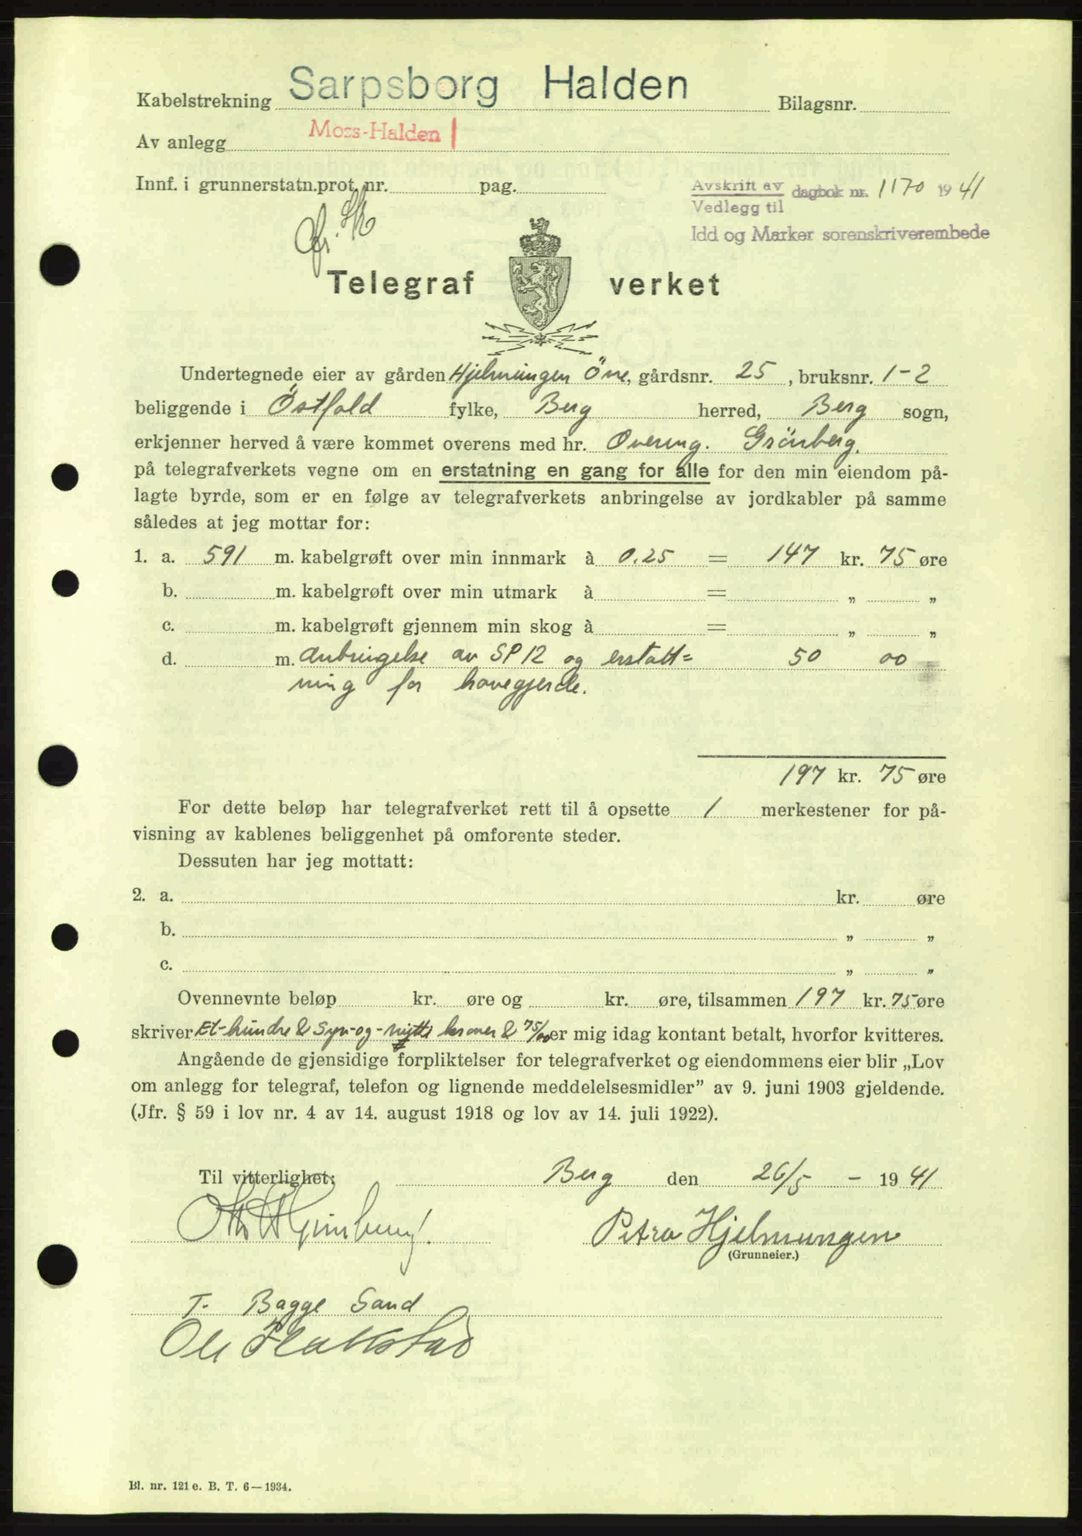 Kabelstrekning Sarpsborg Halden Bilagsnr.
Av anlegg Moss-Halden
Innf. i grunnerstatn.prot. nr. pag.
Avskrift av
Vedlegg til
dagbok nr. 1170 1941
Idd og Marker sorenskriverembede
Telegraf verket
Undertegnede eier av gården Hjelmungen Övre, gårdsnr. 25, bruksnr. 1-2
beliggende i Östfold fylke, Berg herred, Berg sogn,
erkjenner herved å være kommet overens med hr. Overing. Grönberg.
på telegrafverkets vegne om en erstatning en gang for alle for den min eiendom på-
lagte byrde, som er en følge av telegrafverkets anbringelse av jordkabler på samme
således at jeg mottar for:
1. a. 591 m. kabelgrøft over min innmark à 0.25 = 147 kr. 75 øre
b. m. kabelgrøft over min utmark à = „ „
c. m. kabelgrøft gjennem min skog à = „ „
d. m. Anbringelse av SP12 og erstatt= 50 00
ning for havegjerde.
197 kr. 75 øre
For dette beløp har telegrafverket rett til å opsette 1 merkestener for på-
visning av kablenes beliggenhet på omforente steder.
Dessuten har jeg mottatt:
2. a. kr. øre
b. „ „
c. „ „
Ovennevnte beløp kr. øre og kr. øre, tilsammen 197 kr. 75 øre
skriver Et-hundre & Syv-og-nytti kroner & 75/00 er mig idag kontant betalt, hvorfor kvitteres.
Angående de gjensidige forpliktelser for telegrafverket og eiendommens eier blir „Lov
om anlegg for telegraf, telefon og lignende meddelelsesmidler” av 9. juni 1903 gjeldende.
(Jfr. § 59 i lov nr. 4 av 14. august 1918 og lov av 14. juli 1922).
Til vitterlighet: Berg den 26/5 - 1941
Petra Hjelmungen
(Grunneier.)
T. Bagge Sand
Ole
Bl. nr. 121 e. B. T. 6 — 1934.